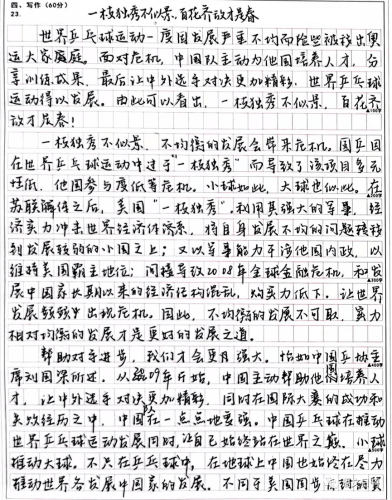 四、写作（60分）
23.
一枝独秀不似景，百花齐放才是春
世界乒乓球运动一度因发展严重不均而险些被移出奥
运大家庭。面对危机，中国队主动为他国培养人才，分
享训练成果，最后让中外选手对决更加精彩，世界乒乓球
运动得以发展。由此可以看出，一枝独秀不似景，百花齐
放才是春！
一枝独秀不似景，不均衡的发展会带来危机。国乒因
在世界乒乓球运动中过于“一枝独秀”而导致了该项目多元
性低，他国参与度低等危机。小球如此，大球也似此。在
苏联解体之后，美国“一枝独秀”，利用其强大的军事，经
济实力冲击世界经济体系，将自身发展不均的问题转移
到发展较弱的小国之上；又以军事能力干涉他国内政，以
维持美国霸主地位；间接导致2008年全球金融危机，和发
展中国家长期以来的经济结构混乱，购买力低下。让世界
发展频频中出现危机。因此，不均衡的发展不可取，实力
相对均衡的发展才是更好的发展之道。
帮助对手进步，我们才会更加强大。恰如中国乒协主
席刘国梁所述，从09年开始，中国主动帮助他国培养人
才，让中外选手对决更加精彩，同时在国际大赛的成功和
失败经历之中，中国队在一点点地变强。中国乒乓球在推动
世界乒乓球运动发展同时，让自己始终站在世界之巅。小球
推动大球。不只在乒乓球中，在地球上中国也始终在尽力
推动世界各发展中国家的发展。不同于美国